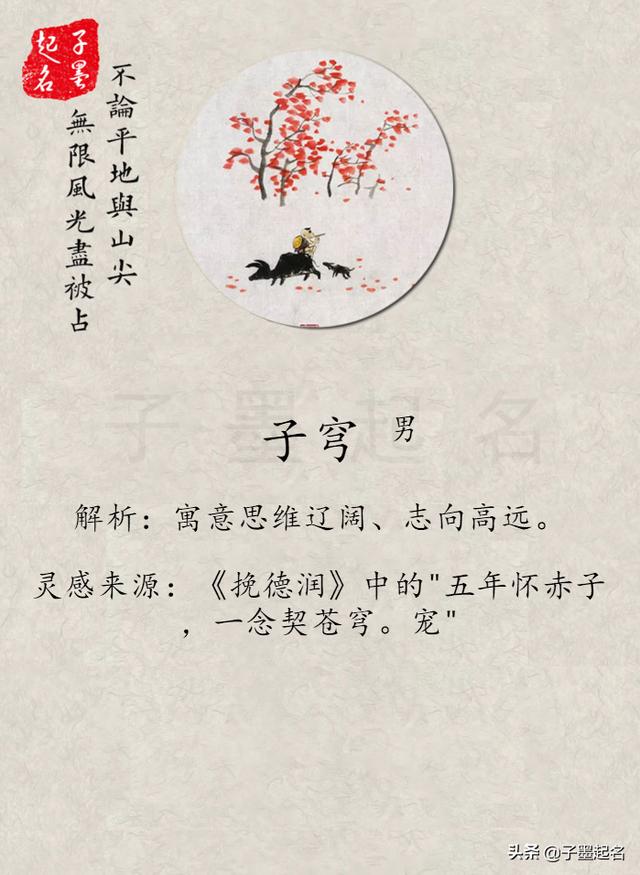 子墨
起名
不論平地與山尖
無限風光盡被占
子墨起名
子穹 男
解析：寓意思维辽阔、志向高远。
灵感来源：《挽德润》中的"五年怀赤子
，一念契苍穹。宠"
头条 @子墨起名